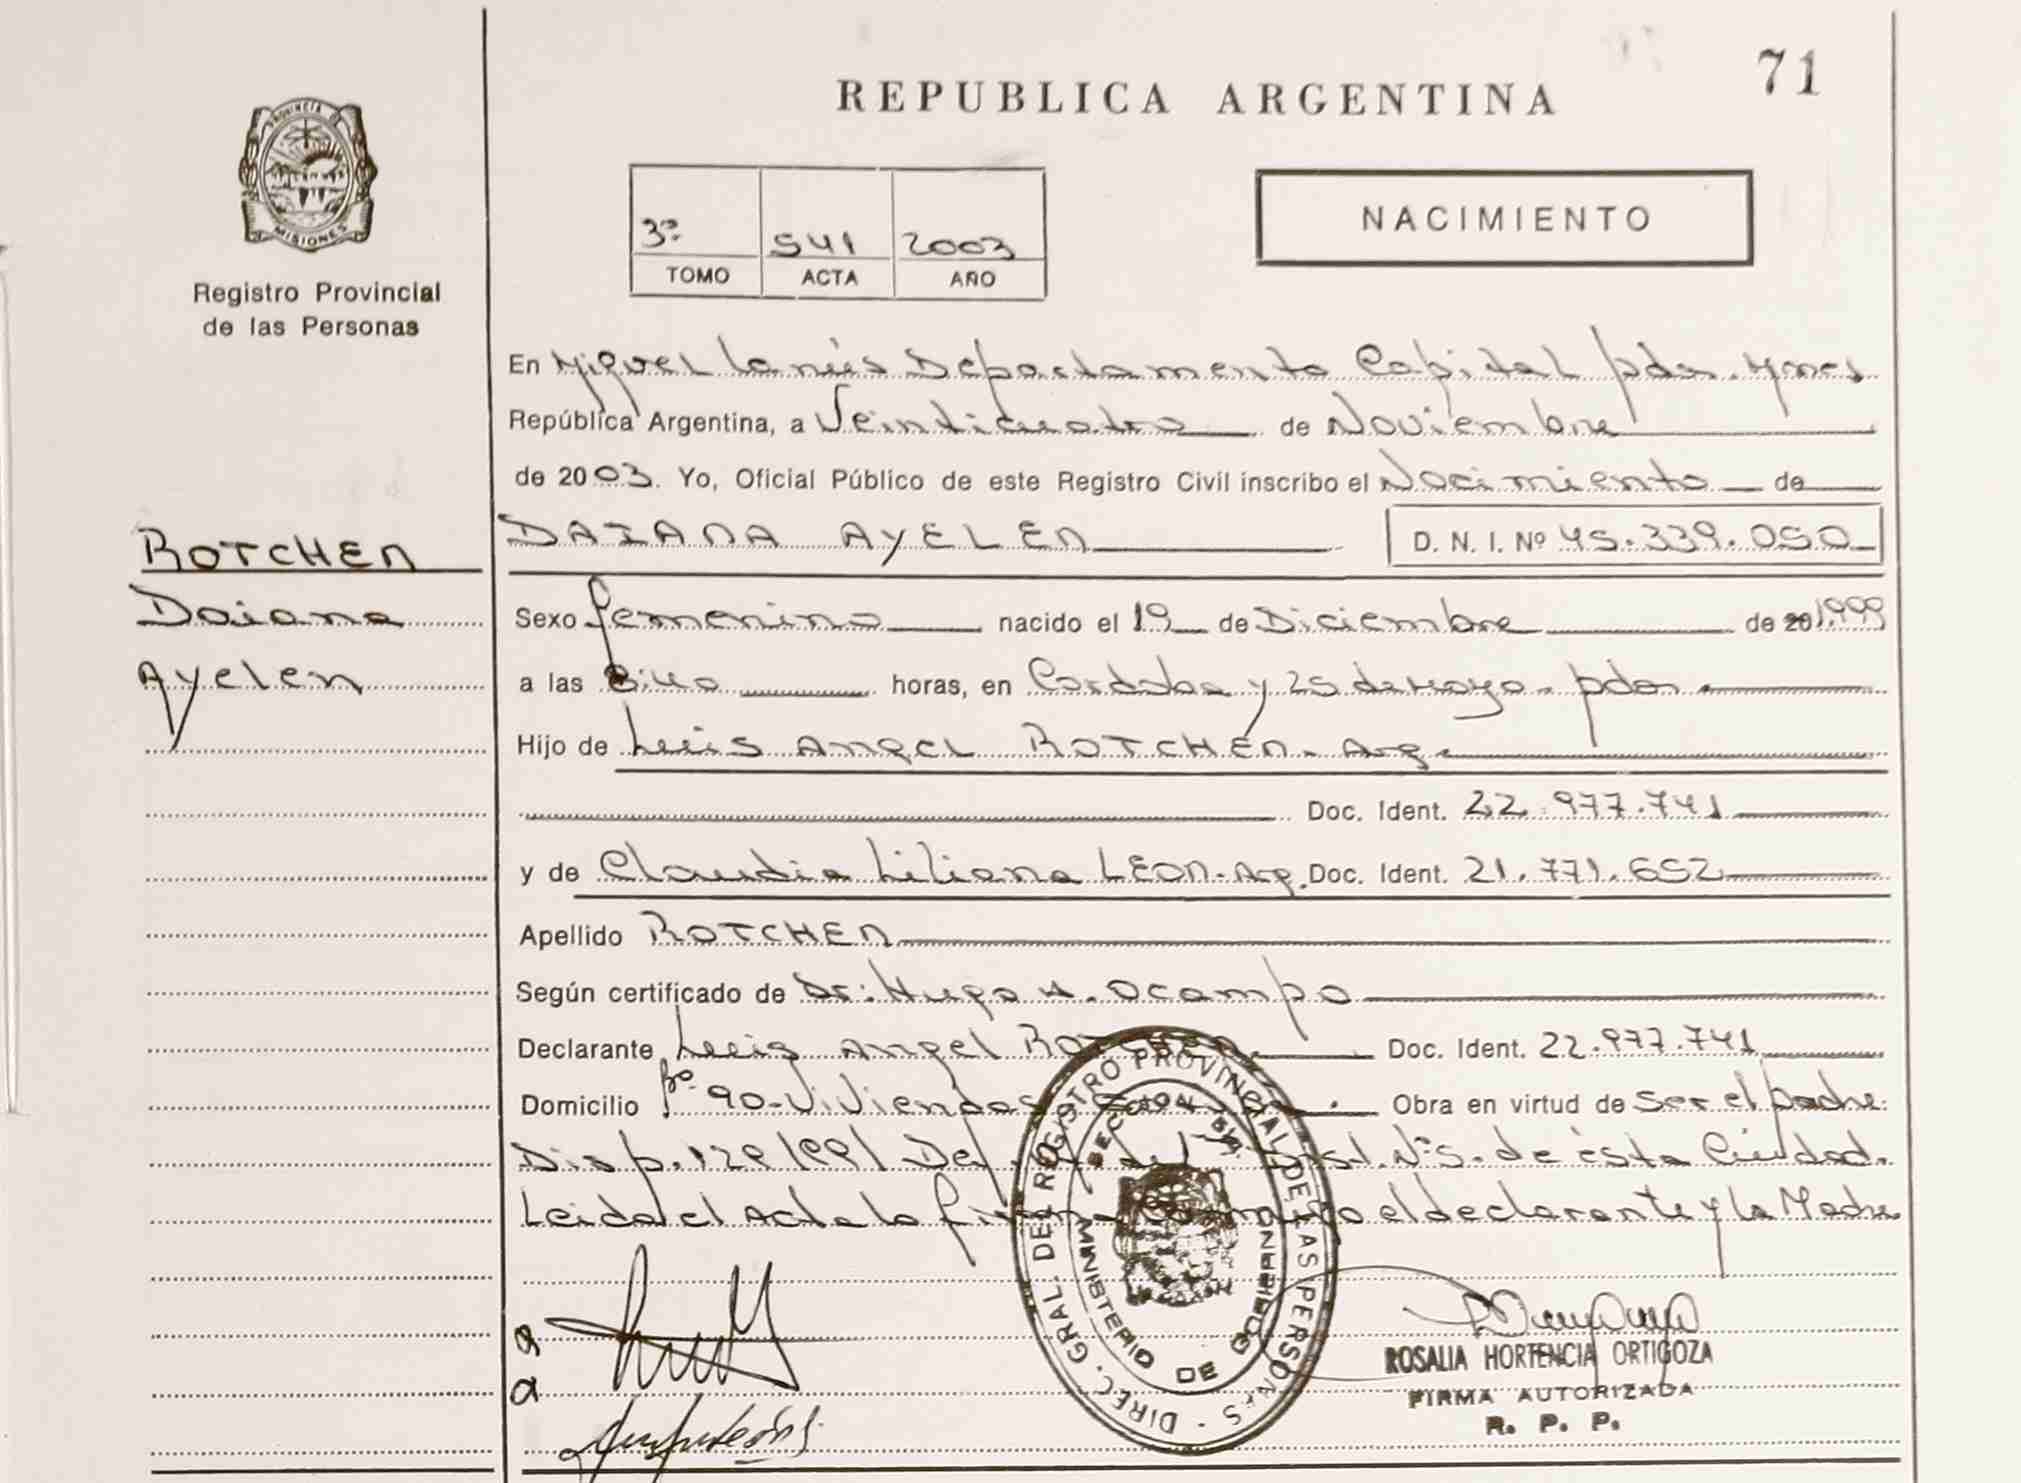 REPUBLICA ARGENTINA
71
PROVINCIA DE
MISIONES
Registro Provincial
de las Personas
3º 541 2003
TOMO ACTA AÑO
NACIMIENTO
En Miguel Lanús Departamento Capital pdas. Mnes
República Argentina, a Veinticuatro de Noviembre
de 2003. Yo, Oficial Público de este Registro Civil inscribo el Nacimiento de
ROTCHEN
DAIANA AYELEN D. N. I. Nº 45.339.050
Daiana
Ayelen
Sexo femenino nacido el 19 de Diciembre de 20 1999
a las horas, en Cordoba y 25 de Mayo - pdas
Hijo de Luis Angel ROTCHEN - Arg.
Doc. Ident. 22.977.741
y de Claudia Liliana LEON - Arg. Doc. Ident. 21.771.652
Apellido ROTCHEN
Según certificado de Dr: Hugo A. Ocampo
Declarante Luis Angel ROTCHEN Doc. Ident. 22.977.741
Domicilio Bº 90 - Viviendas Obra en virtud de ser el padre.
Disp. 129/99/ Def. Nº 5. de ésta Ciudad.
Leida el Acta la el declarante y la Madre
DIREC. GRAL. DEL REGISTRO PROVINCIAL DE LAS PERSONAS
SECCION
MINISTERIO DE GOBIERNO
ROSALIA HORTENCIA ORTIGOZA
FIRMA AUTORIZADA
R. P. P.